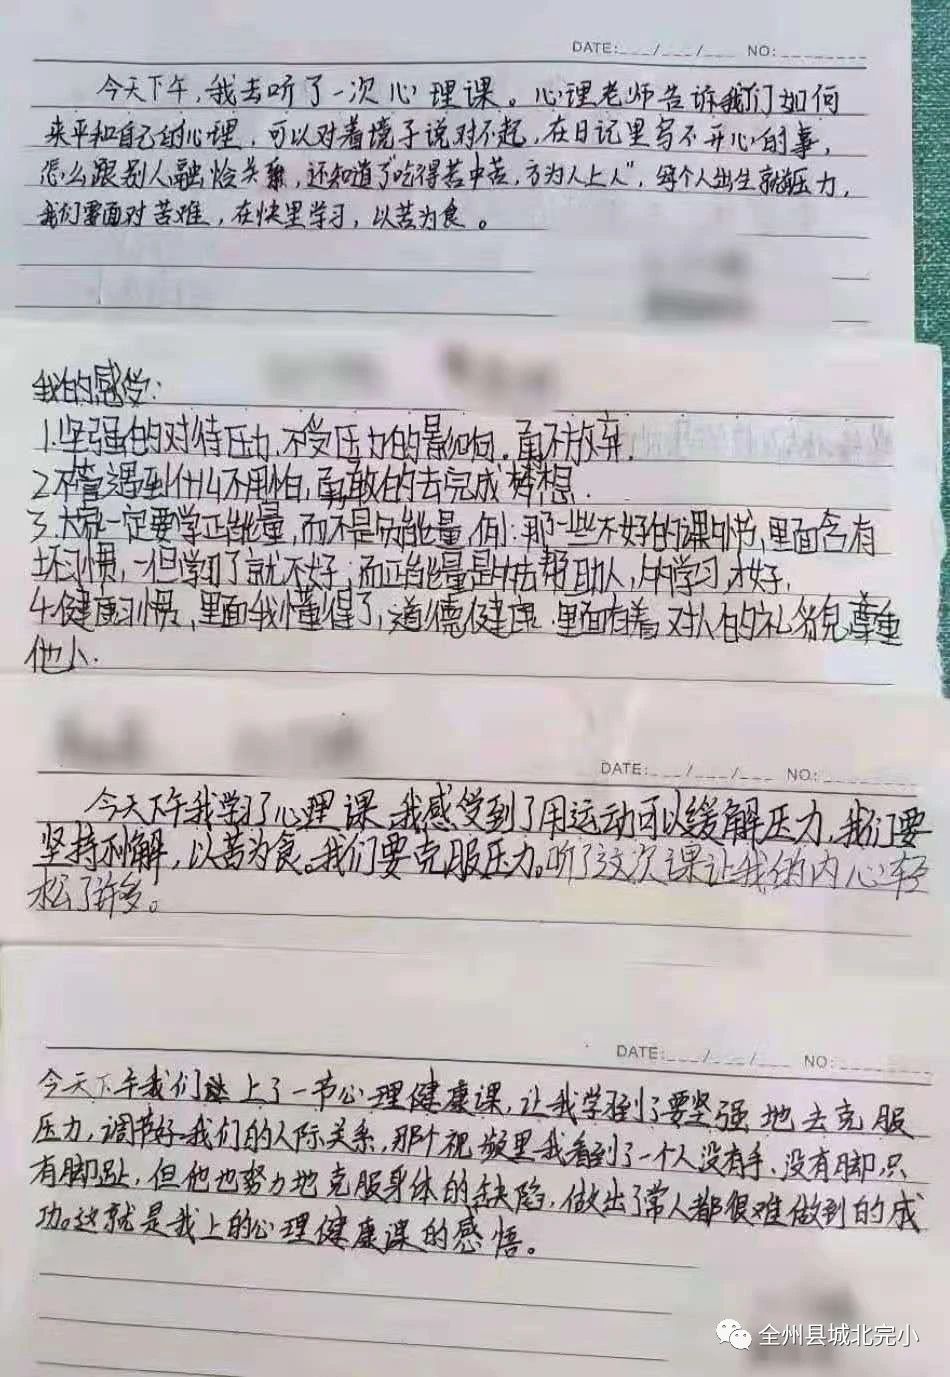 DATE:___/___/___ NO:_______
今天下午,我去听了一次心理课。心理老师告诉我们如何
来平和自己的心理,可以对着境子说对不起,在日记里写不开心的事,
怎么跟别人融恰关系,还知道了"吃得苦中苦,方为人上人",每个人出生就有压力,
我们要面对苦难,在快里学习,以苦为食。
我的感觉:
1.坚强的对待压力,不受压力的影响。勇不放弃.
2.不管遇到什么不用怕,勇敢的去完成梦想.
3.大家一定要学正能量,而不是负能量,例:那一些不好的课外书,里面含有
坏习惯,一但学习了就不好;而正能量是去帮助人,学习,才好,
4.健康习惯,里面我懂得了,道德健康.里面有着,对人的礼貌,尊重
他人.
DATE:___/___/___ NO:_______
今天下午我学习了心理课,我感受到了用运动可以缓解压力,我们要
坚持利解,以苦为食。我们要克服压力。听了这次课让我的内心轻
松了许多。
DATE:___/___/___ NO:_______
今天下午我们上了一节心理健康课,让我学到了要坚强地去克服
压力,调节好我们的人际关系,那个视频里我看到了一个人没有手、没有脚,只
有脚趾,但他也努力地克服身体的缺陷,做出了常人都很难做到的成
功。这就是我上的心理健康课的感悟。
全州县城北完小